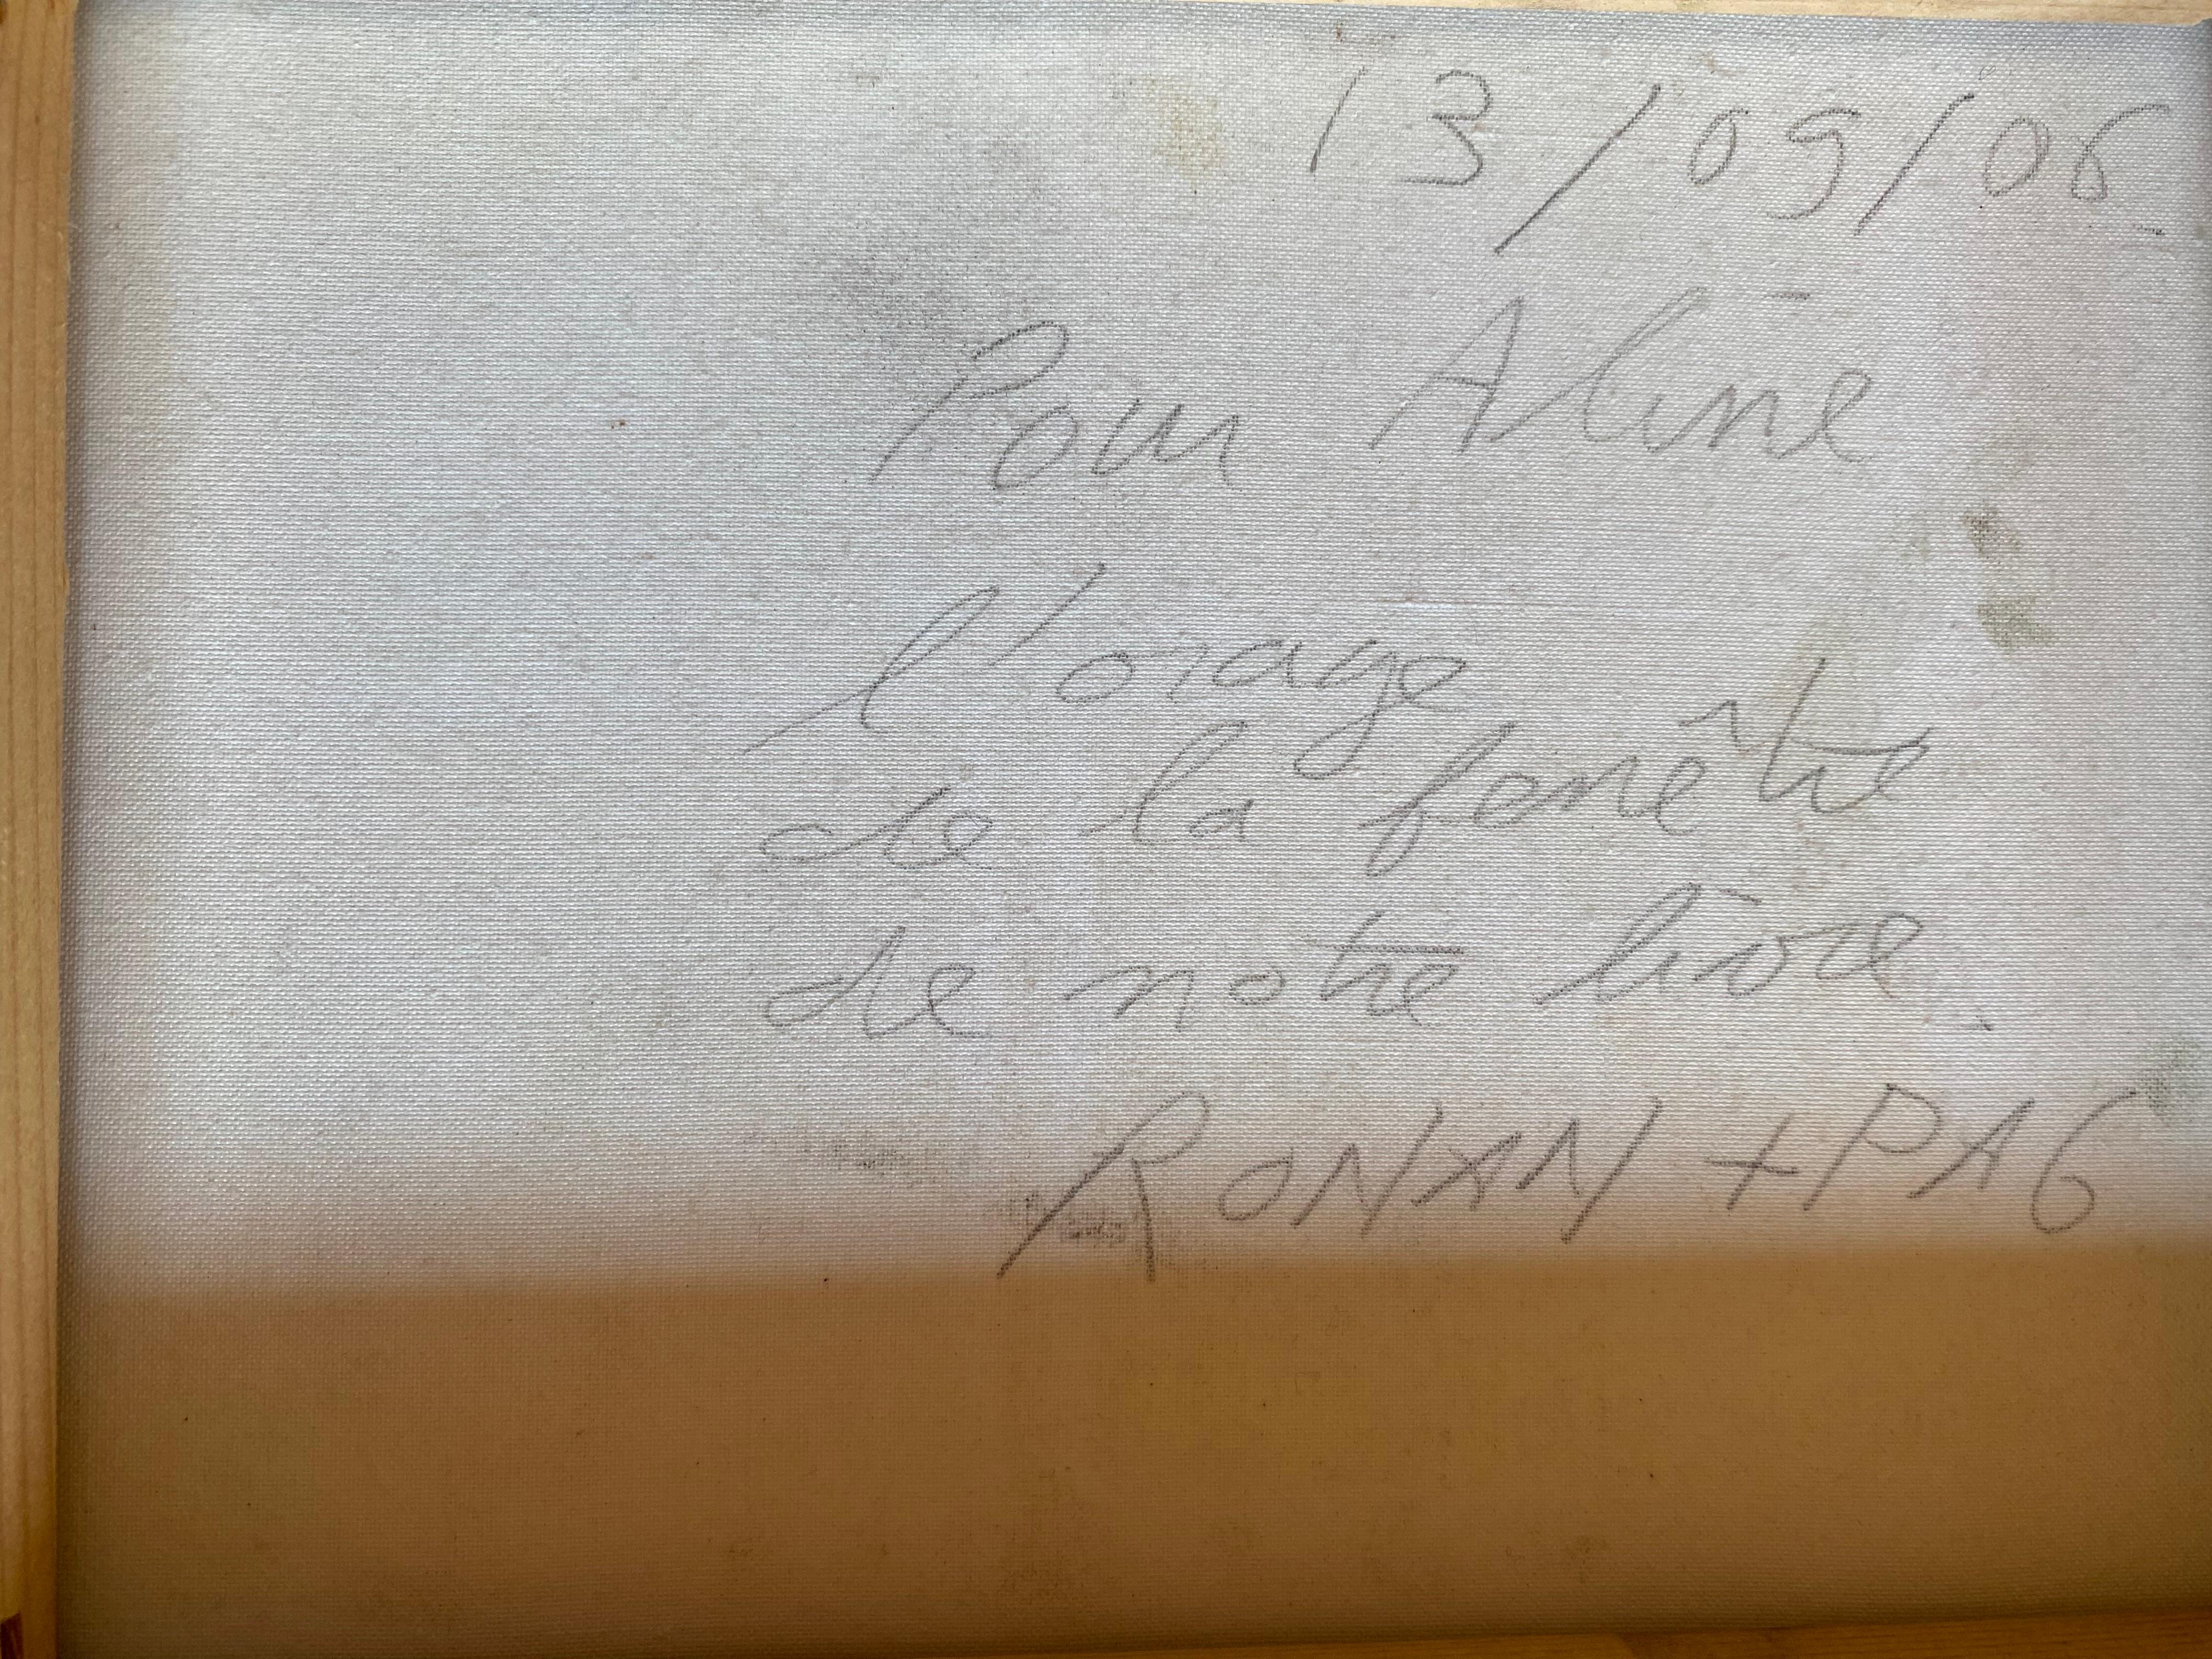 13/09/06
Pour Aline
l'orage
de la fenêtre
de notre livre.
RONAN + PAG